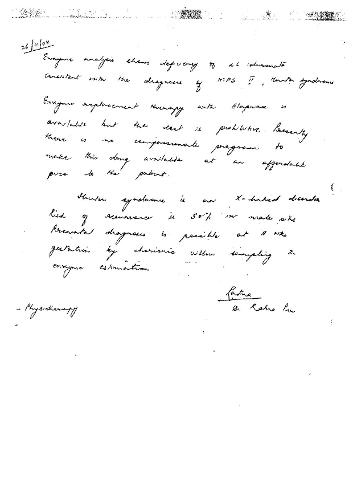 Enzyme analysis shows deficiency of
consistent with the diagnosis of MPS II, Hunter syndrome
Enzyme replacement therapy with Elaprase is
available but the cost is prohibitive. Presently
there is no compassionate program to
make this drug available at an affordable
price to the patient.
Hunter syndrome is an X-linked disorder
Risk of recurrence is 50% in male sibs
Prenatal diagnosis is possible at
gestation by chorionic villus sampling
enzyme estimation
- Physiotherapy